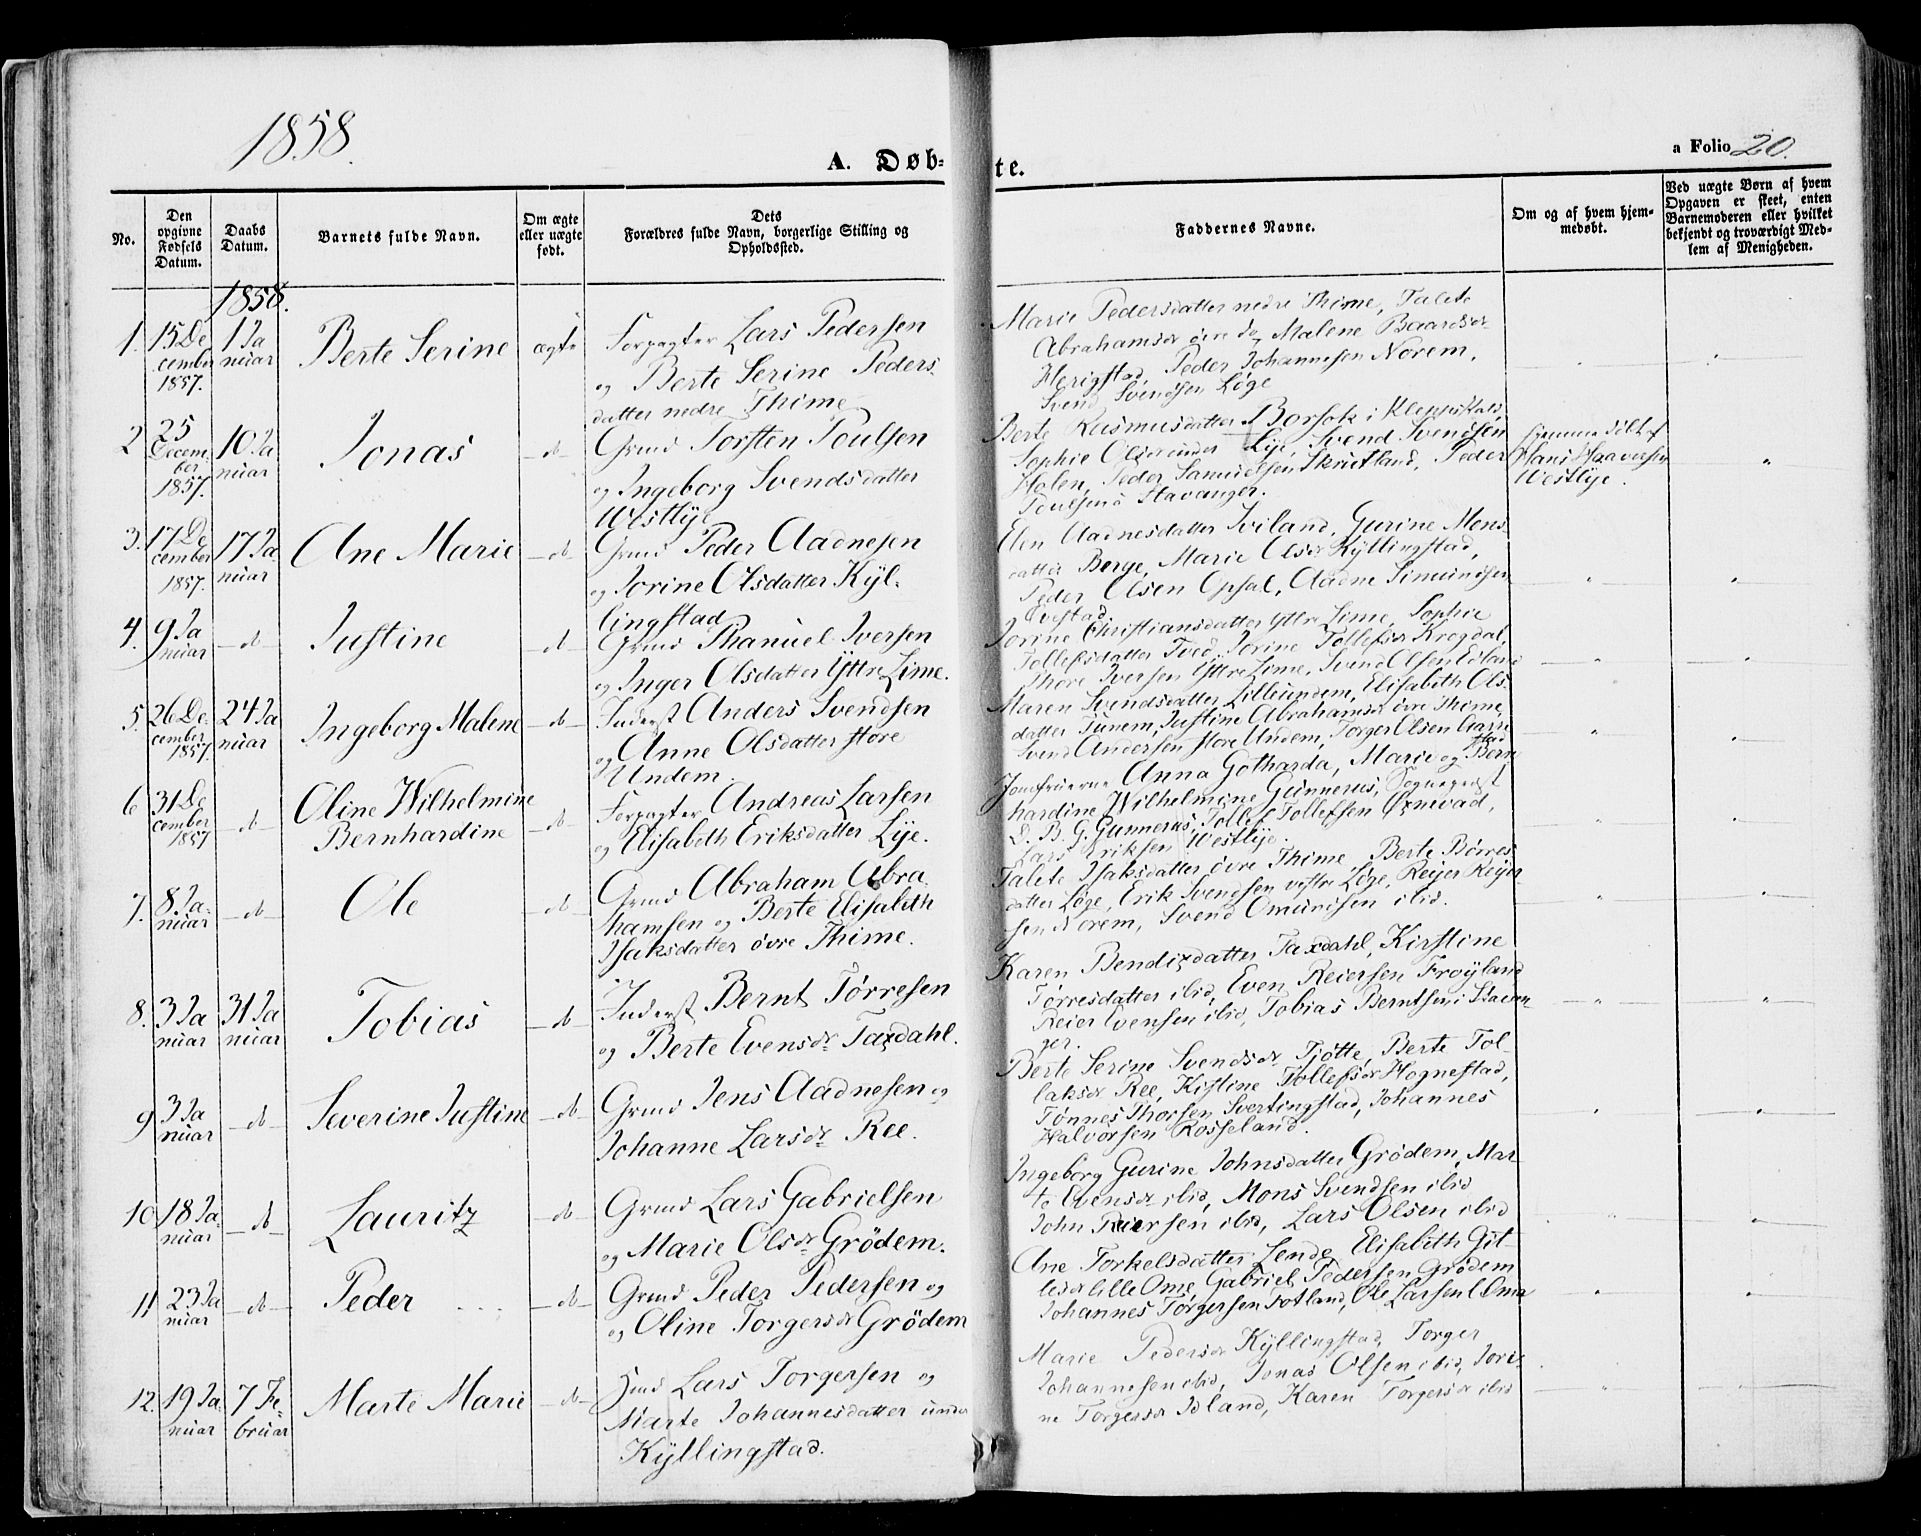 1858.
A. Døb-
te.
a Folio 20.
No.
Den
opgivne
Fødsels
Datum.
Daabs
Datum.
Barnets fulde Navn.
Om ægte
eller uægte
født.
Dets
Forældres fulde Navn, borgerlige Stilling og
Opholdssted.
Faddernes Navne.
Om og af hvem hjem-
medøbt.
Ved uægte Børn af hvem
Opgaven er skeet, enten
Barnemoderen eller hvilket
bekjendt og troværdigt Med-
lem af Menigheden.
1858.
1.
15 De
cember
1857.
1 Ja
nuar
Berte Serine
ægte
Forpagter Lars Pedersen
og Berte Serine Peders
datter nedre Thime
Marie Pedersdatter nedre Thime, Talete
Abrahamsdr øvre do, Malene Baardsdr
Herigstad, Peder Johannesen Norem,
Svend Svendsen Løge
2
25
Decem-
ber
1857.
10 Ja
nuar
Jonas
do
Grmd Torsten Poulsen
og Ingeborg Svendsdatter
Westlye
Berte Rasmusdatter Borsok i Klep
Sophie Lye, Svend Svendsen
Holen, Peder Samuelsen Skrutland, Peder
Poulsen i Stavanger.
hjemmedøbt af
Hans Haaversen
Westlye.
3.
17 De
cember
1857.
17 Ja
nuar
Ane Marie
do
Grmd Peder Aadnesen
og Jorine Olsdatter Kyl-
lingstad
Elen Aadnesdatter Sviland, Gurine Mons
datter Berge, Marie Olsdr Kyllingstad,
Peder Olsen Opsal, Aadne Simundsen
Evestad
4.
9 Ja
nuar
do
Justine
do
Grmd Thanuel Iversen
og Inger Olsdatter Yttre Lime.
Jorine Christiansdatter Yttre Lime, Sophie
Tollefsdatter Tved, Jorine Tollefsdr Krogdal,
Thore Iversen Yttre Lime, Svend Olsen Edland
5.
26 De
cember
1857.
24 Ja
nuar
Ingeborg Malene
do
Inderst Anders Svendsen
og Anne Olsdatter store
Undem.
Maren Svendsdatter Lilleundem, Elisabeth Ols-
datter Tunem, Justine Abrahamsdr øvre Thime,
Svend Andersen store Undem, Torger Olsen Garpe
stad
6
31 De
cember
1857
do
Oline Wilhelmine
Bernhardine
do
Forpagter Andreas Larsen
og Elisabeth Eriksdatter Lye.
Jomfruerne Anna Gotharda, Marie og Bern
hardine Wilhelmine Gunnerus, Sognepræst
D. B. G. Gunnerus, Tollef Tollefsen Øxnevad,
Lars Eriksen Westlye.
7.
8. Ja-
nuar
do
Ole
do
Grmd Abraham Abra
hamsen og Berte Elisabeth
Isaksdatter øvre Thime.
Talete Isaksdatter øvre Thime, Berte Børres
datter Løge, Erik Svendsen vestre Løge, Reijer Reijer
sen Norem, Svend Omundsen ibid.
8.
3 Ja
nuar
31 Ja
nuar
Tobias
do
Inderst Bernt Tørresen
og Berte Evensdr Taxdahl.
Karen Bendixdatter Taxdahl, Kirstine
Tørresdatter ibid, Even Reiersen Frøyland
Reier Evensen ibid, Tobias Berntsen i Stavan-
ger.
9
3 Ja
nuar
do
Severine Justine
do
Grmd Jens Aadnesen og
Johanne Larsdr Ree.
Berte Serine Svendsdr Tjøtte, Berte Tol-
laksdr Ree, Kistine Tollefsdr Hognestad,
Tønnes Thorsen Svertingstad, Johannes
Halvorsen Rosseland.
10
18 Ja-
nuar
do
Lauritz
do
Grmd Lars Gabrielsen
og Marie Olsdr Grødem.
Ingeborg Gurine Johnsdatter Grødem, Mar
te Evensdr ibid, Mons Svendsen ibid
John Reiersen ibid, Lars Olsen ibid
11
23 Ja
nuar
do
Peder
do
Grmd Peder Pedersen og
og Oline Torgersdr Grødem
Ane Torkelsdatter Lende, Elisabeth Git-
lesdr lille Ome, Gabriel Pedersen Grødem
Johannes Torgersen Fotland, Ole Larsen l. Ome
12.
19 Ja
nuar
7 Fe-
bruar
Marte Marie
do
Hmd Lars Torgersen og
Marte Johannesdatter under
Kyllingstad.
Marie Pedersdr Kyllingstad, Torger
Johannesen ibid, Jonas Olsen ibid, Jori-
ne Torgersdr Idland, Karen Torgersdr ibid